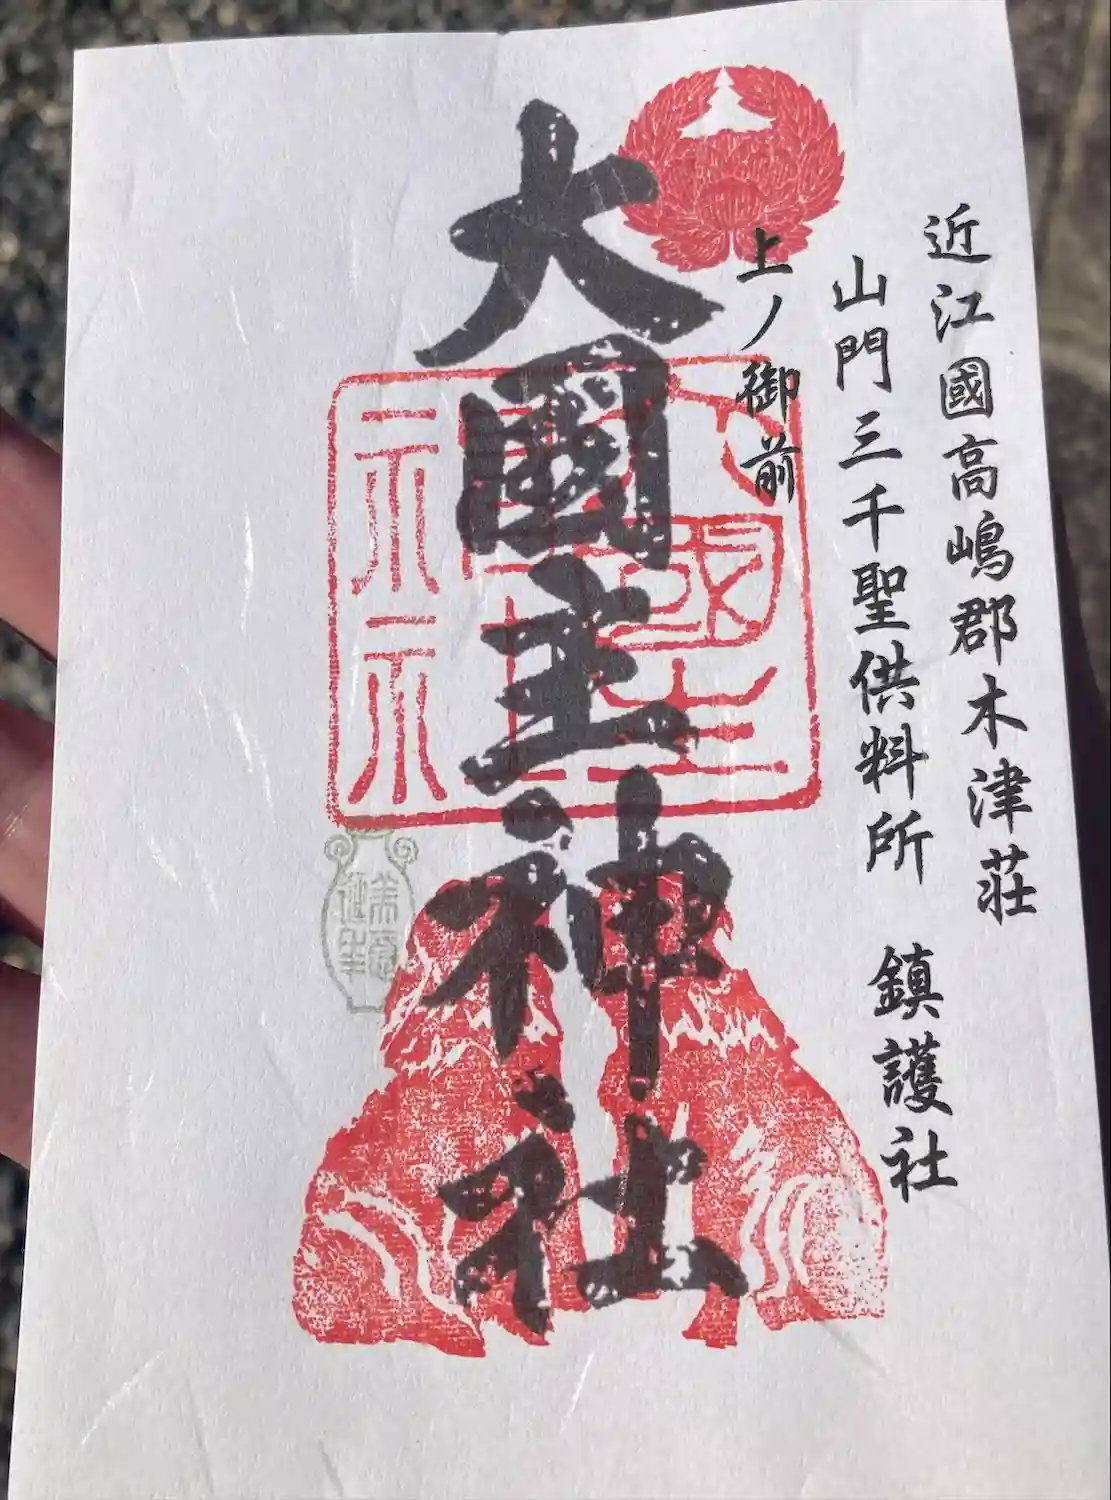 近江國高嶋郡木津荘
山門三千聖供料所　鎮護社
上ノ御前
大國主神社